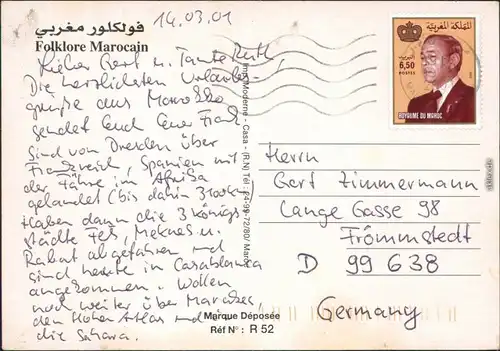 14.03.01
فولكلور مغربي
Folklore Marocain
Lieber Gert u. Tante Ruth,
Die herzlichsten Urlaubs-
grüße aus Marokko
sendet Euch Euer Frank
Sind von Dresden über
Frankreich, Spanien mit
der Fähre in Afrika
gelandet (bis dahin 3100km)
Haben dann die 3 Königs-
städte Fes, Meknes u.
Rabat abgefahren und
sind heute in Casablanca
angekommen. Wollen
noch weiter über Marakesch
den Hohen Atlas und
die Sahara.
Marque Déposée
Réf N° : R 52
Moderne - Casa - (R.N) Tél :
المملكة المغربية
6,50
POSTES
ROYAUME DU MAROC
Herrn
Gert Zimmermann
Lange Gasse 98
Frömmstedt
D 99638
Germany